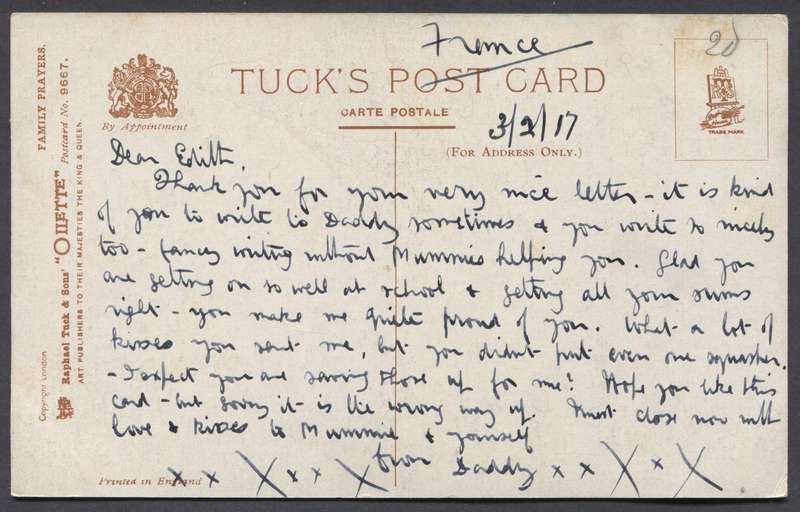 France
2d
TUCK'S POST CARD
CARTE POSTALE
3/2/17
(FOR ADDRESS ONLY.)
By Appointment
TRADE MARK
FAMILY PRAYERS.
Raphael Tuck & Sons' "OILETTE" Postcard No. 9667.
ART PUBLISHERS TO THEIR MAJESTIES THE KING & QUEEN.
Copyright London
Dear Edith,
Thank you for your very nice letter - it is kind
of you to write to Daddy sometimes & you write so nicely
too - fancy writing without Mummies helping you. Glad you
are getting on so well at school & getting all your sums
right - you make me quite proud of you. What a lot of
kisses you sent me, but you didn't put even one squasher.
- I expect you are saving those up for me! Hope you like this
card - but sorry it is the wrong way up. Must close now with
love & kisses to Mummie & yourself
from Daddy x x X x X
x x X x x X
Printed in England